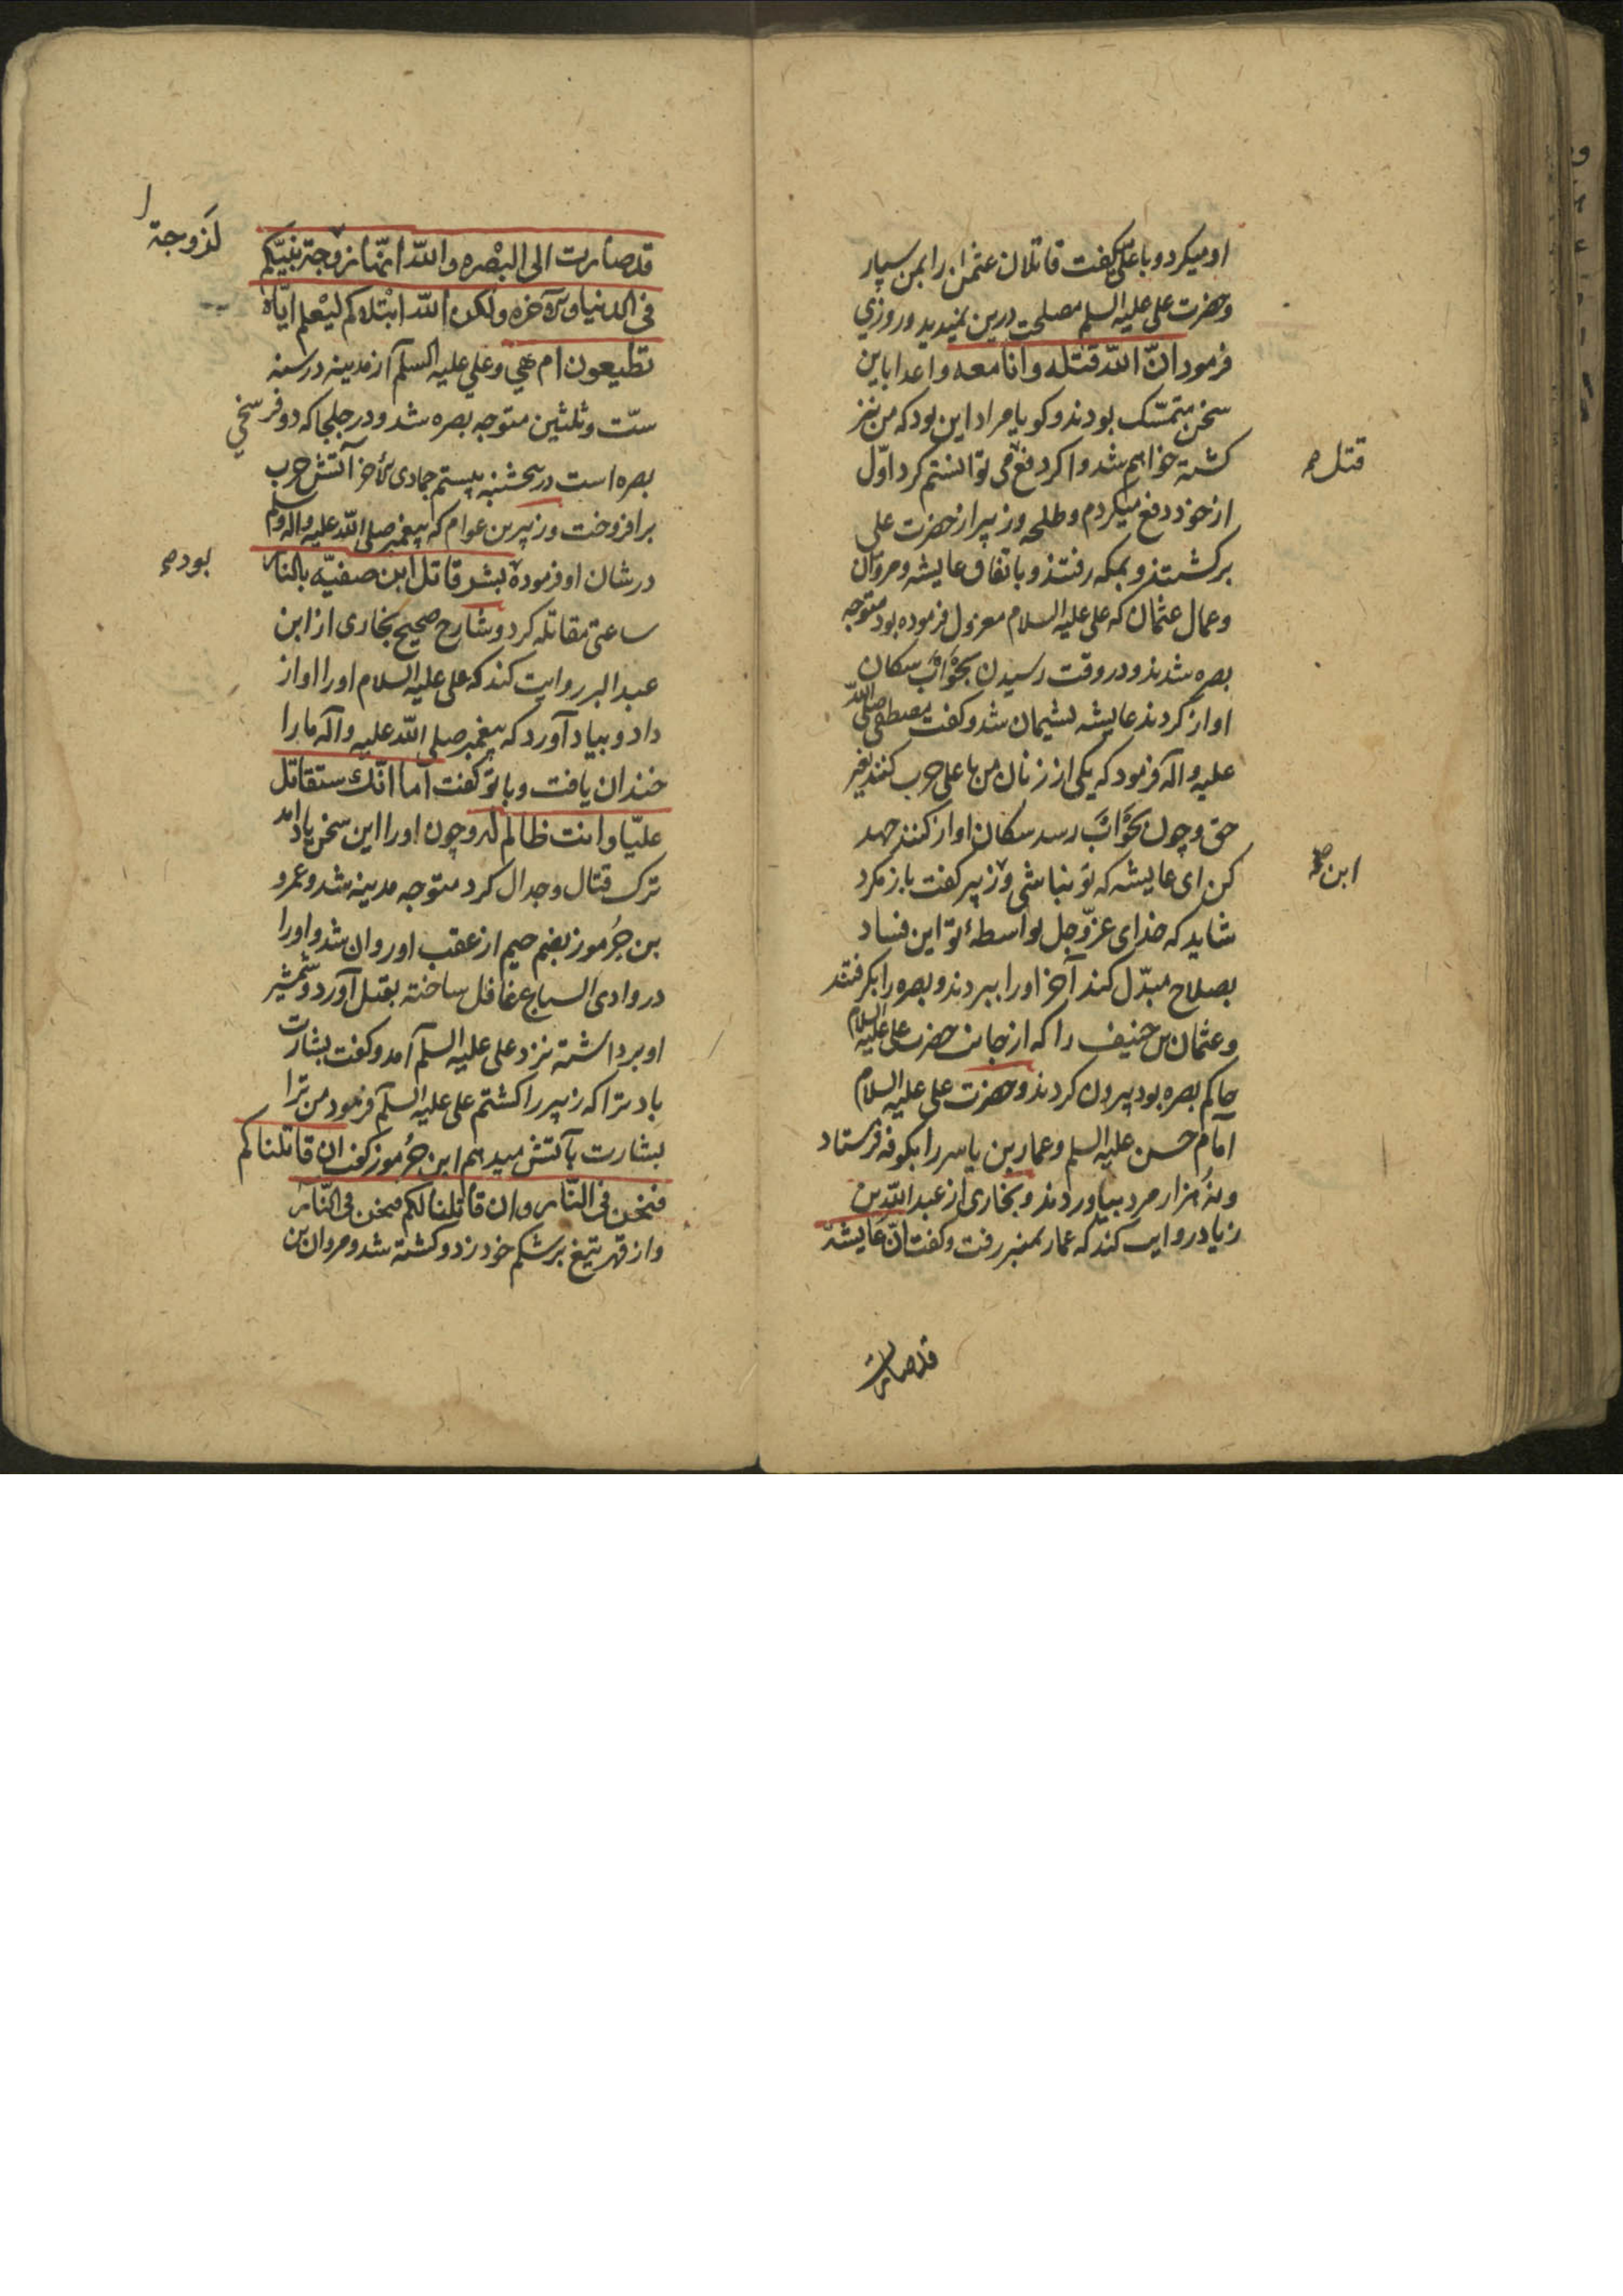 او میکرد و با علی گفت قاتلان عثمان را بمن سپار
و حضرت علی علیه السلم مصلحت درین نمیدید و روزی
فرمود انّ اللّه قتله وانا معه و اعدا باین
سخن متمسّک بودند و کویا مراد این بود که من نیز
کشته خواهم شد و اکر دفع می توانستم کرد اوّل
قتل
از خود دفع میکردم و طلحه و زبیر از حضرت علی
برکشتند و بمکه رفتند و باتفاق عایشه و مروان
و عمال عثمان که علی علیه السلام معزول فرموده بود متوجه
بصره شدند و در وقت رسیدن بحَوْأب سکان
اواز کردند عایشه پشیمان شد و کفت مصطفی صلی اللّه
علیه و اله فرمود که یکی از زنان من با علی حرب کنند بغیر
حق و چون بحَوْأب رسد سکان اواز کنند جهد
کن ای عایشه که تو نباشی و زبیر کفت باز مکرد
ابن
شاید که خدای عزّ و جل بواسطهٔ تو این فساد
بصلاح مبدّل کند آخر او را ببردند و بصره را بکرفتند
و عثمان بن حنیف را که از جانب حضرت علی علیه السلام
حاکم بصره بود بیرون کردند و حضرت علی علیه السلام
امام حسن علیه السلم و عمار بن یاسر را بکوفه فرستاد
و نُه هزار مرد بیاوردند و بخاری از عبد اللّه بن
زیاد روایت کند که عمار بمنبر رفت و کفت انّ عایشة
قد صارت
قد صارت الی البْصره و اللّه انّها زوجة نبیّکم
لزوجة
فی الدنیا و الآخره و لکن اللّه ابْتلاکم لیْعلم ایّاه
تطیعون ام هی و علی علیه السلم از مدینه در سنه
ستّ و ثلثین متوجه بصره شد و در جلجا که دو فرسخی
بصره است در پنجشنبه بیستم جمادی الآخر آتش حرب
برافروخت و زبیر بن عوام که پیغمبر صلی اللّه علیه و اله و سلم
در شان او فرموده بشر قاتل ابن صفیّه بالنار
بوده
ساعتی مقاتله کرد و شارح صحیح بخاری از ابن
عبد البر روایت کند که علی علیه السلام او را اواز
داد و بیاد آورد که پیغمبر صلی اللّه علیه و آله ما را
خندان یافت و با تو کفت اما انّک ستقاتل
علیّا و انت ظالم له و چون او را این سخن یاد امد
ترک قتال و جدال کرد متوجه مدینه شد و عمرو
بن جُرموز بضم جیم از عقب او روان شد و او را
در وادی السباع غافل ساخته بقتل آورد و شمشیر
او برداشته نزد علی علیه السلم آمد و کفت بشارت
باد ترا که زبیر را کشتم علی علیه السلم فرمود من ترا
بشارت بآتش میدهم ابن جُرموز کفت ان قاتلناکم
فنحن فی النّار و ان قاتلنا لکم فنحن فی النّار
و از قهر تیغ بر شکم خود زد و کشته شد و مروان بن